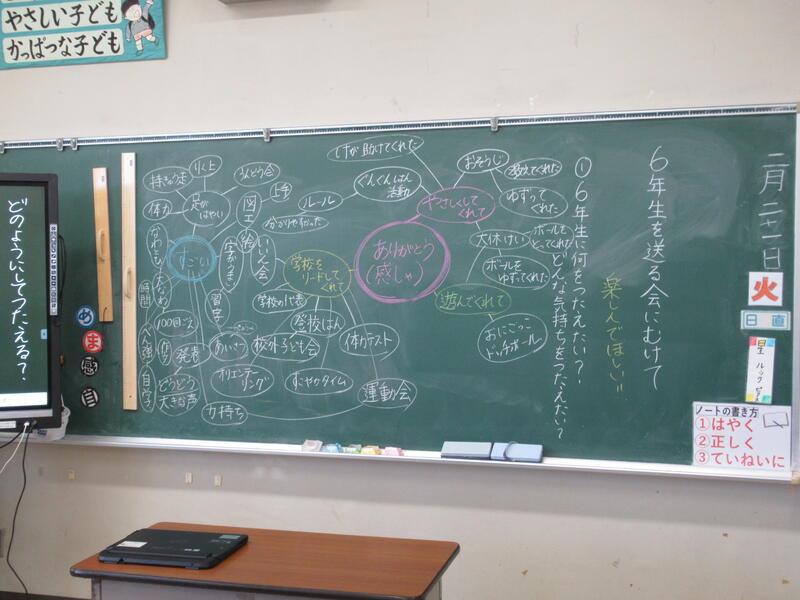 やさしい子ども
かっぱつな子ども
二月二十一日
火
日直
6年生を送る会にむけて
楽しんでほしい!!
①6年生に何をつたえたい?
どんな気持ちをつたえたい?
ありがとう
感しゃ
やさしくして
くれて
おそうじ
教えてくれた
ゆずって
くれた
大休けい
ボールを
とってくれた
ボールを
ゆずってくれた
遊んでくれて
おにごっこ
ドッチボール
けが 助けてくれた
ぐんぐんはん
活動
ルール
分かりやすかった
学校を
リードして
くれて
いいん会
学校の代表
登校はん
校外子ども会
体力テスト
運動会
すこやかタイム
オリエンテー
リング
あいさつ
すごい
足が
はやい
りく上
持きゅう走
体力
うんどう会
図工
上手
絵
字がうまい
習字
なわとび
100回ごえ
時間
べん強
自学
発表
どうどう
大きな声
力持ち
どのようにしてつたえる?
め
ま
感
ノートの書き方
①はやく
②正しく
③ていねいに